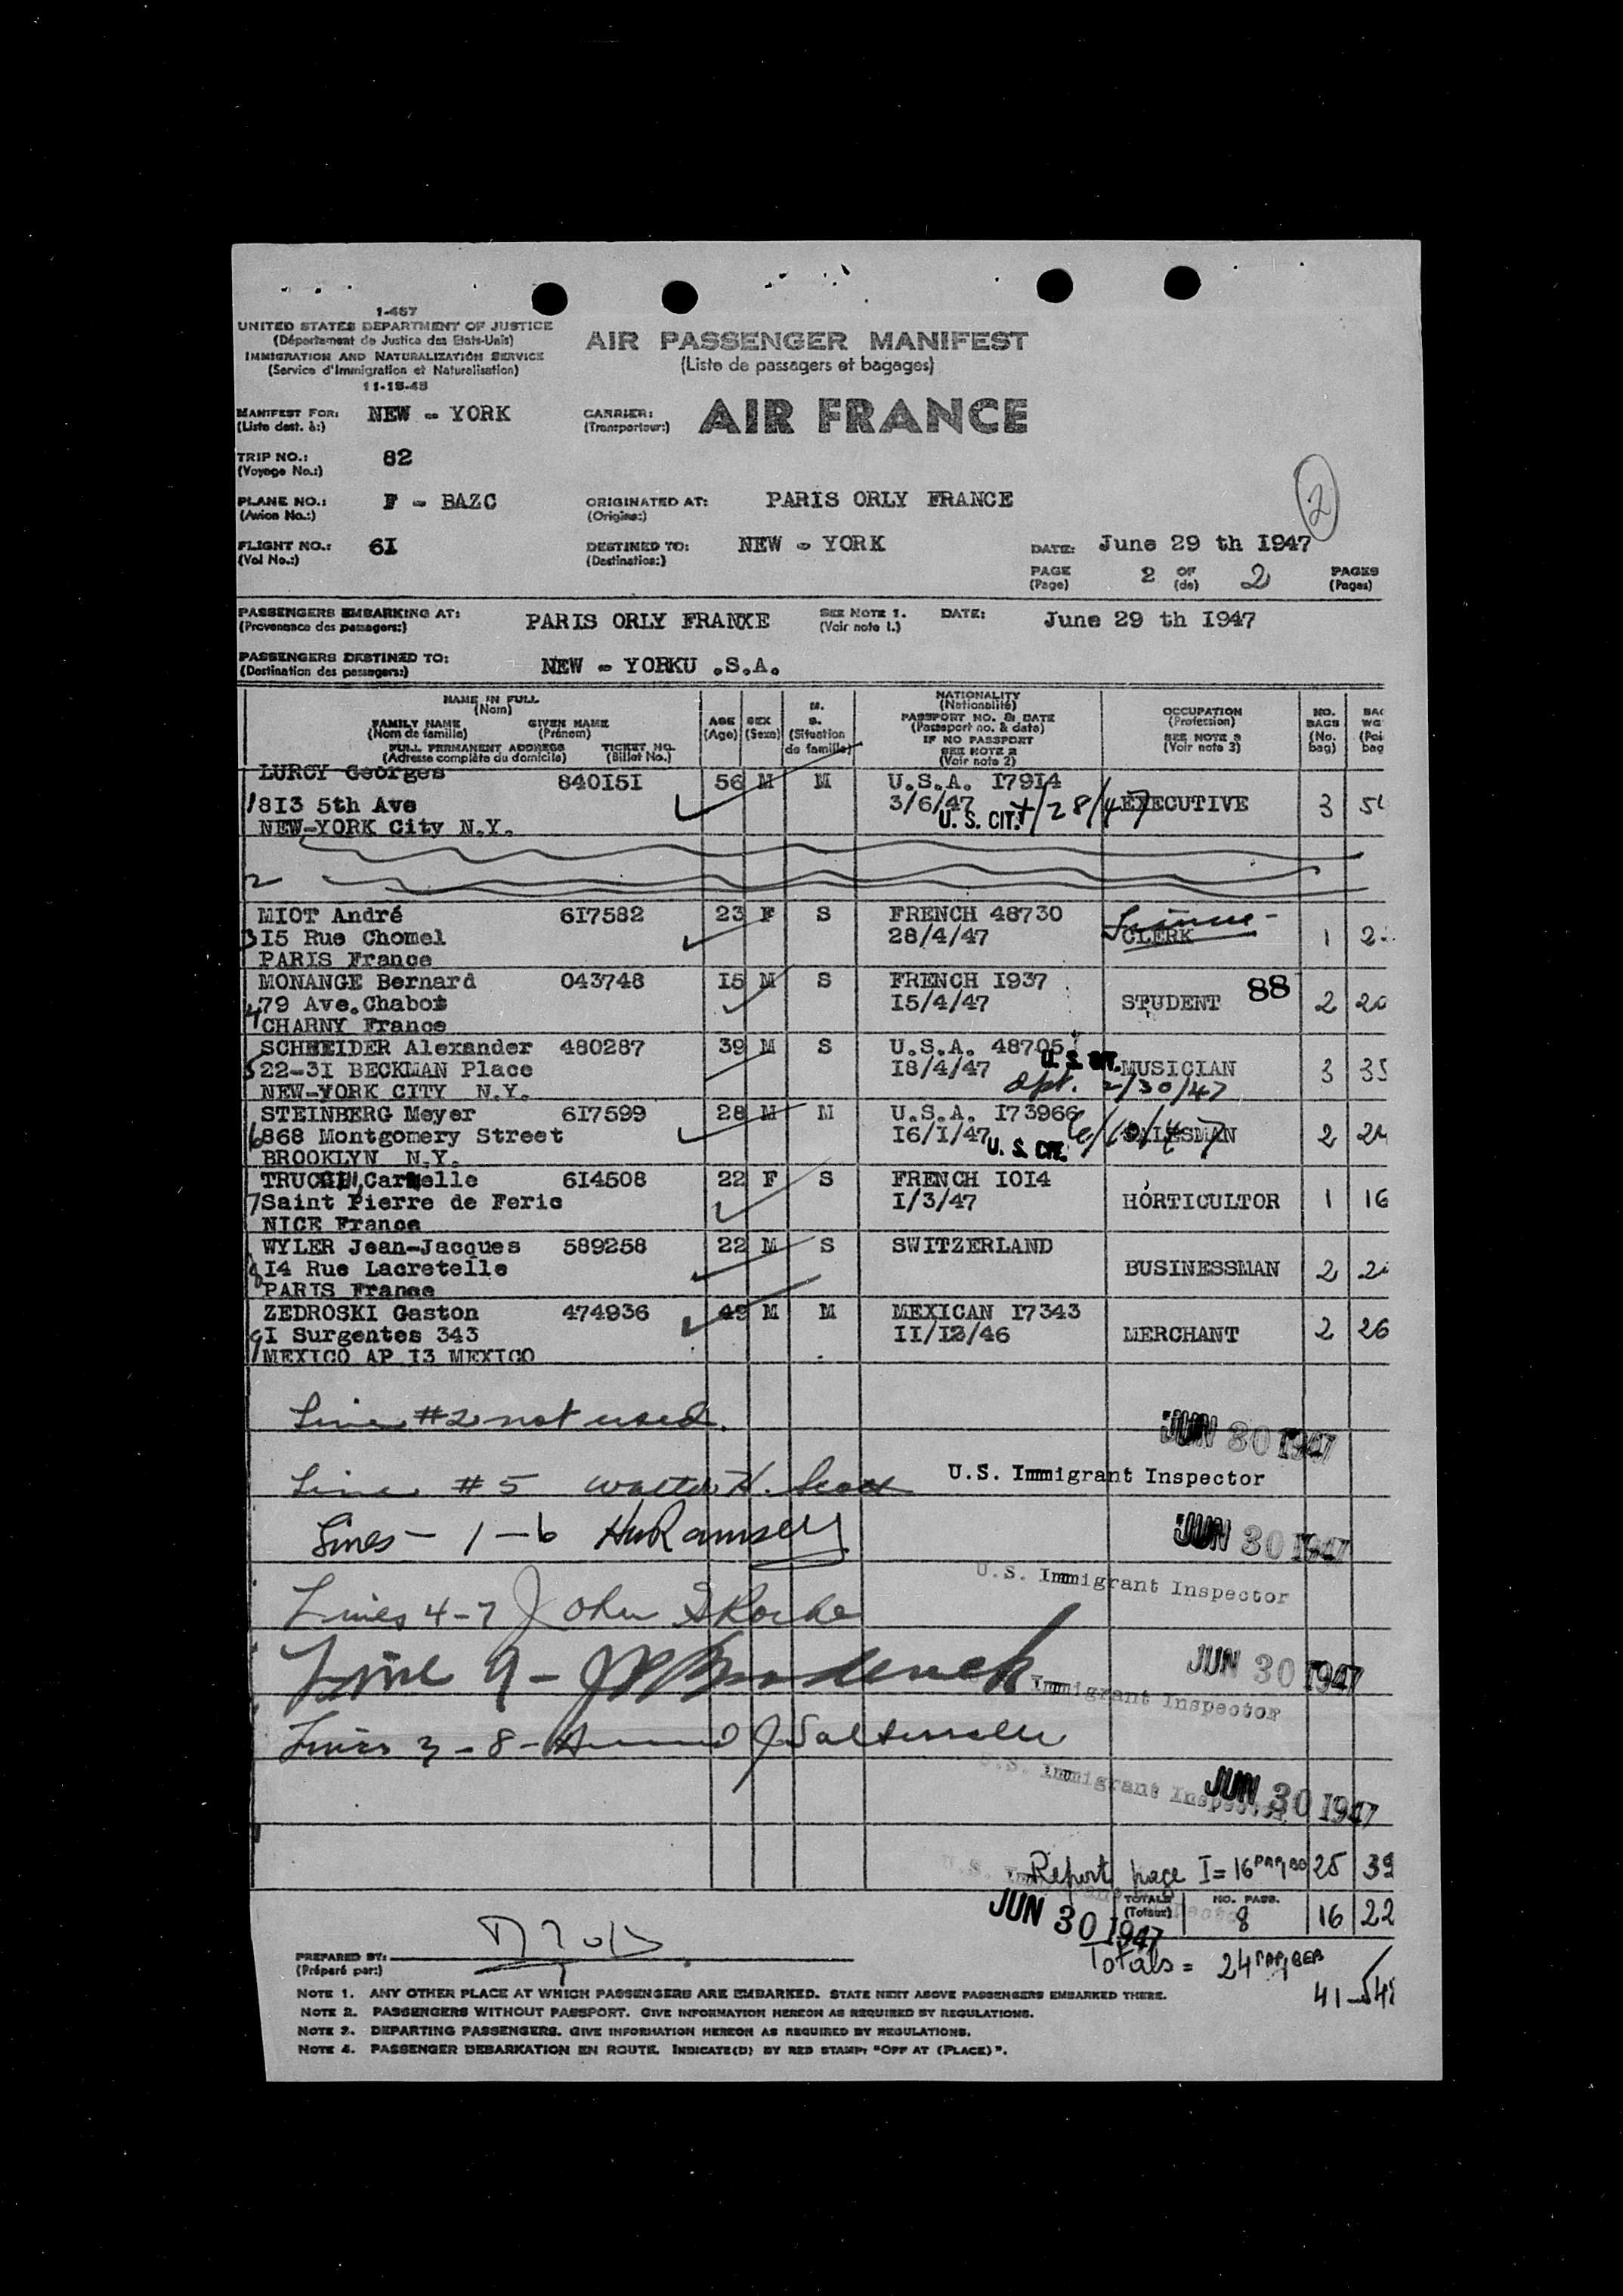 1-467
UNITED STATES DEPARTMENT OF JUSTICE
(Département de Justice des Etats-Unis)
IMMIGRATION AND NATURALIZATION SERVICE
(Service d'Immigration et Naturalisation)
11-15-45
AIR PASSENGER MANIFEST
(Liste de passagers et bagages)
MANIFEST FOR: NEW - YORK
(Liste dest. à:)
CARRIER: AIR FRANCE
(Transporteur:)
TRIP NO.: 82
(Voyage No.:)
PLANE NO.: F - BAZC
(Avion No.:)
ORIGINATED AT: PARIS ORLY FRANCE
(Origine:)
2
FLIGHT NO.: 6I
(Vol No.:)
DESTINED TO: NEW - YORK
(Destination:)
DATE: June 29 th I947
PAGE 2 OF 2 PAGES
(Page) (de) (Pages)
PASSENGERS EMBARKING AT: PARIS ORLY FRANXE SEE NOTE 1. DATE: June 29 th I947
(Provenance des passagers:) (Voir note 1.)
PASSENGERS DESTINED TO: NEW - YORKU .S.A.
(Destination des passagers:)
NAME IN FULL
(Nom)
FAMILY NAME GIVEN NAME
(Nom de famille) (Prénom)
FULL PERMANENT ADDRESS TICKET NO.
(Adresse complète du domicile) (Billet No.)
AGE
(Age)
SEX
(Sexe)
M.
S.
(Situation
de famille)
NATIONALITY
(Nationalité)
PASSPORT NO. & DATE
(Passeport no. & date)
IF NO PASSPORT
SEE NOTE 2
(Voir note 2)
OCCUPATION
(Profession)
SEE NOTE 3
(Voir note 3)
NO.
BAGS
(No.
bag)
LURCY Georges 840I5I 56 M M U.S.A. I79I4
1 8I3 5th Ave 3/6/47 EXECUTIVE 3
NEW-YORK City N.Y. U. S. CIT.
2
MIOT André 6I7582 23 F S FRENCH 48730
3 I5 Rue Chomel 28/4/47 CLERK 1
PARIS France
MONANGE Bernard 043748 I5 M S FRENCH I937
4 79 Ave.Chabot I5/4/47 STUDENT 88 2 20
CHARNY France
SCHNEIDER Alexander 480287 39 M S U.S.A. 48705
5 22-3I BECKMAN Place I8/4/47 U. S. CIT. MUSICIAN 3 35
NEW-YORK CITY N.Y. 2/30/47
STEINBERG Meyer 6I7599 28 M M U.S.A. I73966
6 868 Montgomery Street I6/I/47 U. S. CIT. SALESMAN 2 24
BROOKLYN N.Y.
6I4508 22 F S FRENCH IOI4
7 Saint Pierre de Feric I/3/47 HORTICULTOR 1 16
NICE France
WYLER Jean-Jacques 589258 22 M S SWITZERLAND
8 I4 Rue Lacretelle BUSINESSMAN 2
PARIS France
ZEDROSKI Gaston 474936 49 M M MEXICAN I7343
9 I Surgentes 343 II/I2/46 MERCHANT 2 26
MEXICO AP I3 MEXICO
Line #2 not used.
JUN 30 1947
Line #5 Walter H. Scott U.S. Immigrant Inspector
Lines - 1-6 HW Ramsey JUN 30 1947
U.S. Immigrant Inspector
Lines 4-7 John S Roche
Line 9 - JUN 30 1947
Immigrant Inspector
Lines 3-8-
U.S. Immigrant Inspector
JUN 30 1947
Report page I = 16 25 39
TOTALS NO. PASS.
(Totaux) 8 16 22
JUN 30 1947
Totals = 24
41
PREPARED BY:
(Préparé par:)
NOTE 1. ANY OTHER PLACE AT WHICH PASSENGERS ARE EMBARKED. STATE NEXT ABOVE PASSENGERS EMBARKED THERE.
NOTE 2. PASSENGERS WITHOUT PASSPORT. GIVE INFORMATION HEREON AS REQUIRED BY REGULATIONS.
NOTE 3. DEPARTING PASSENGERS. GIVE INFORMATION HEREON AS REQUIRED BY REGULATIONS.
NOTE 4. PASSENGER DEBARKATION EN ROUTE. INDICATE(D) BY RED STAMP: "OFF AT (PLACE)".